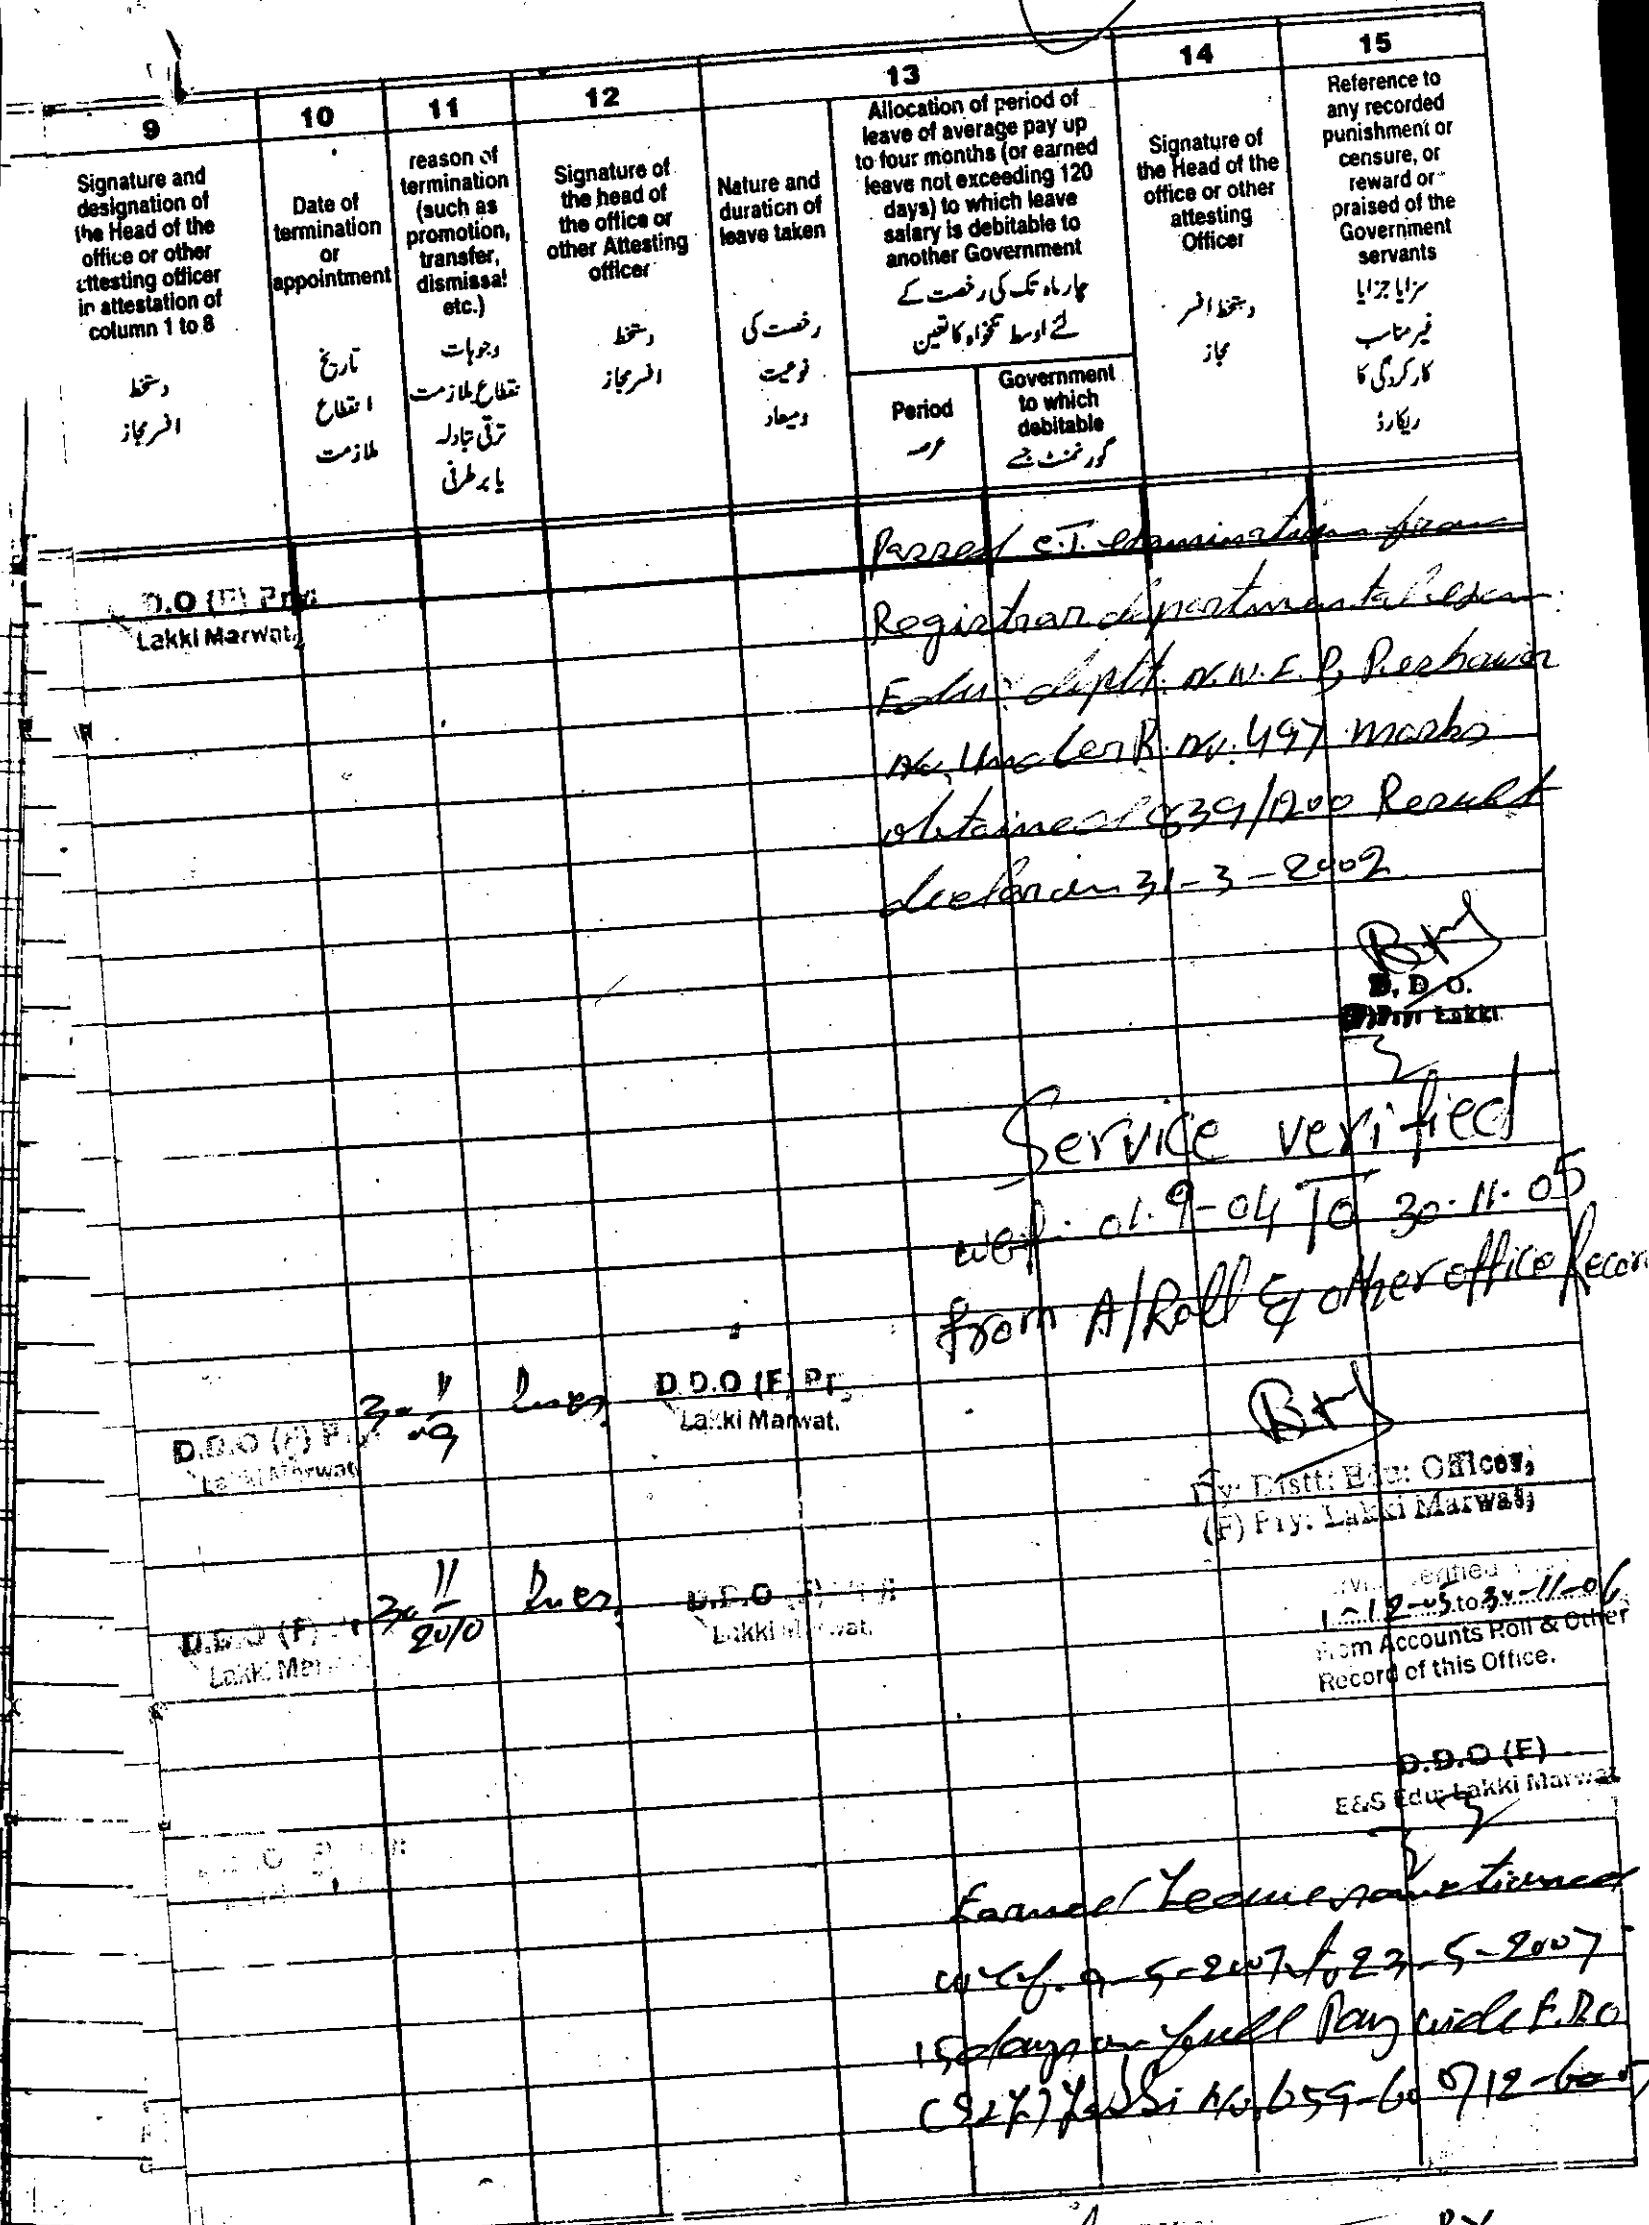 9
10
11
12
13
14
15
Signature and
designation of
the Head of the
office or other
attesting officer
in attestation of
column 1 to 8
دستخط
افسر مجاز
Date of
termination
or
appointment
تاریخ
انقطاع
ملازمت
reason of
termination
(such as
promotion,
transfer,
dismissal
etc.)
وجوہات
انقطاع ملازمت
ترقی تبادلہ
یا برطرفی
Signature of
the head of
the office or
other Attesting
officer
دستخط
افسر مجاز
Nature and
duration of
leave taken
رخصت کی
نوعیت
ومیعاد
Allocation of period of
leave of average pay up
to four months (or earned
leave not exceeding 120
days) to which leave
salary is debitable to
another Government
چار ماہ تک کی رخصت کے
لئے اوسط تنخواہ کا تعین
Period
عرصہ
Government
to which
debitable
گورنمنٹ جسے
Signature of
the Head of the
office or other
attesting
Officer
دستخط افسر
مجاز
Reference to
any recorded
punishment or
censure, or
reward or
praised of the
Government
servants
سزا یا جزا یا
غیر مناسب
کارکردگی کا
ریکارڈ
Passed C.T. examination from
Registrar departmental exam:
Edu: deptt: N.W.F.P, Peshawar
Under R. No. 497 marks
obtained 839/1200 Result
31-3-2002
D.O (F) Pry:
Lakki Marwat.
D.D.O.
(F) Pry: Lakki
Service verified
wef. 01.9-04 To 30.11.05
from A/Roll & other office Recor
D.D.O (F) P
Lakki Marwat
30 11
09
D.D.O (F) Pr
Lakki Marwat.
Dy: Distt: Edu: Officer,
(F) Pry: Lakki Marwat;
D.D.O (F)
Lakki Mar
30 11
2010
D.D.O (F)
Lakki Marwat.
verified
1-12-05 to 30-11-06
from Accounts Roll & Other
Record of this Office.
D.D.O (F)
E&S Edu: Lakki Marwat
Earned Leave sanctioned
w.e.f. 9-5-2007 to 23-5-2007
15 days on full Pay vide E.D.O
(S&L) Lakki No. 659-60